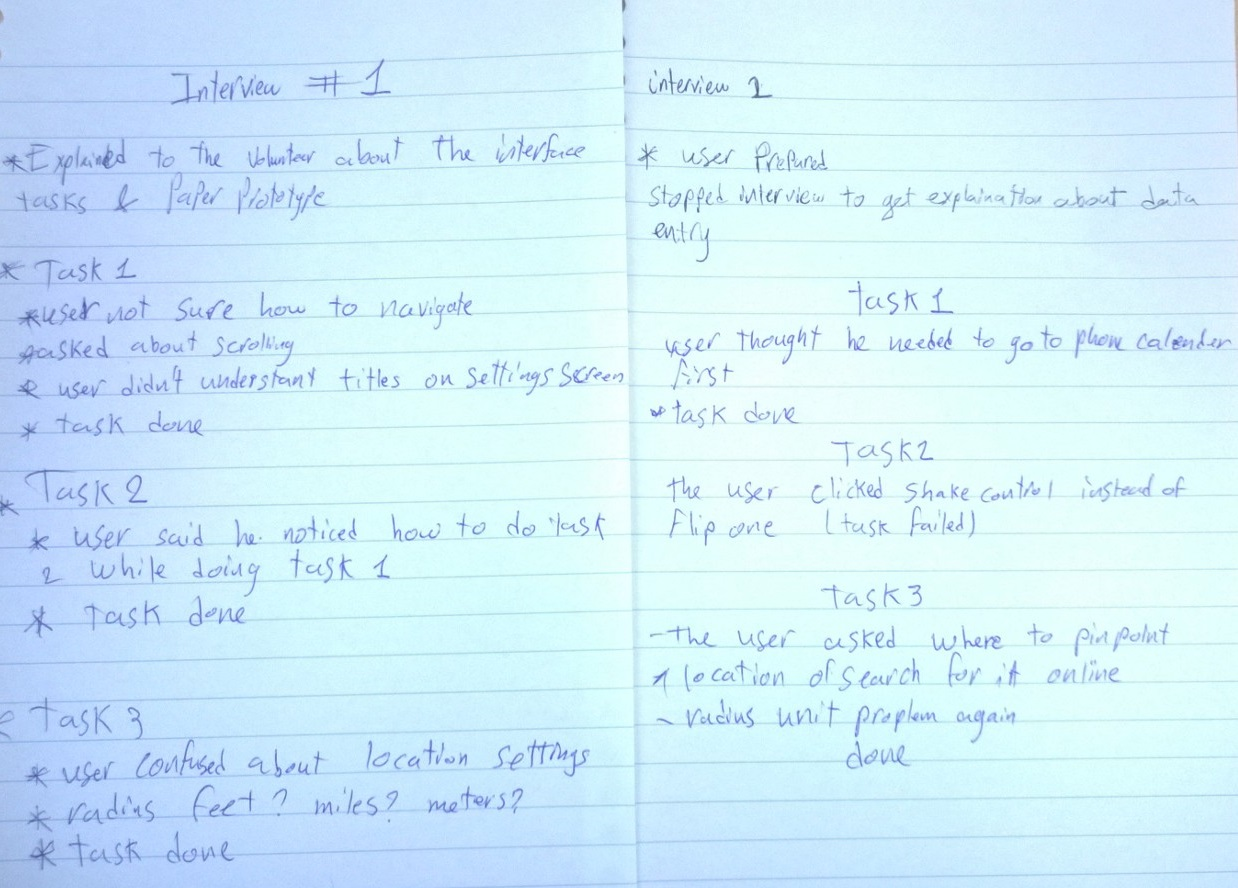 Interview # 1
* Explained to the volunteer about the interface
tasks & Paper Prototype
* Task 1
* user not sure how to navigate
* asked about scrolling
* user didn't understant titles on settings screen
* task done
* Task 2
* user said he noticed how to do task
2 while doing task 1
* Task done
Task 3
* user confused about location settings
* radius feet? miles? meters?
* task done
interview 2
* user Prepared
stopped interview to get explaination about data
entry
Task 1
user thought he needed to go to phone calender
first
* task done
Task 2
the user clicked shake control instead of
Flip one (task failed)
Task 3
- the user asked where to pin point
location of search for it online
- radius unit proplem again
done